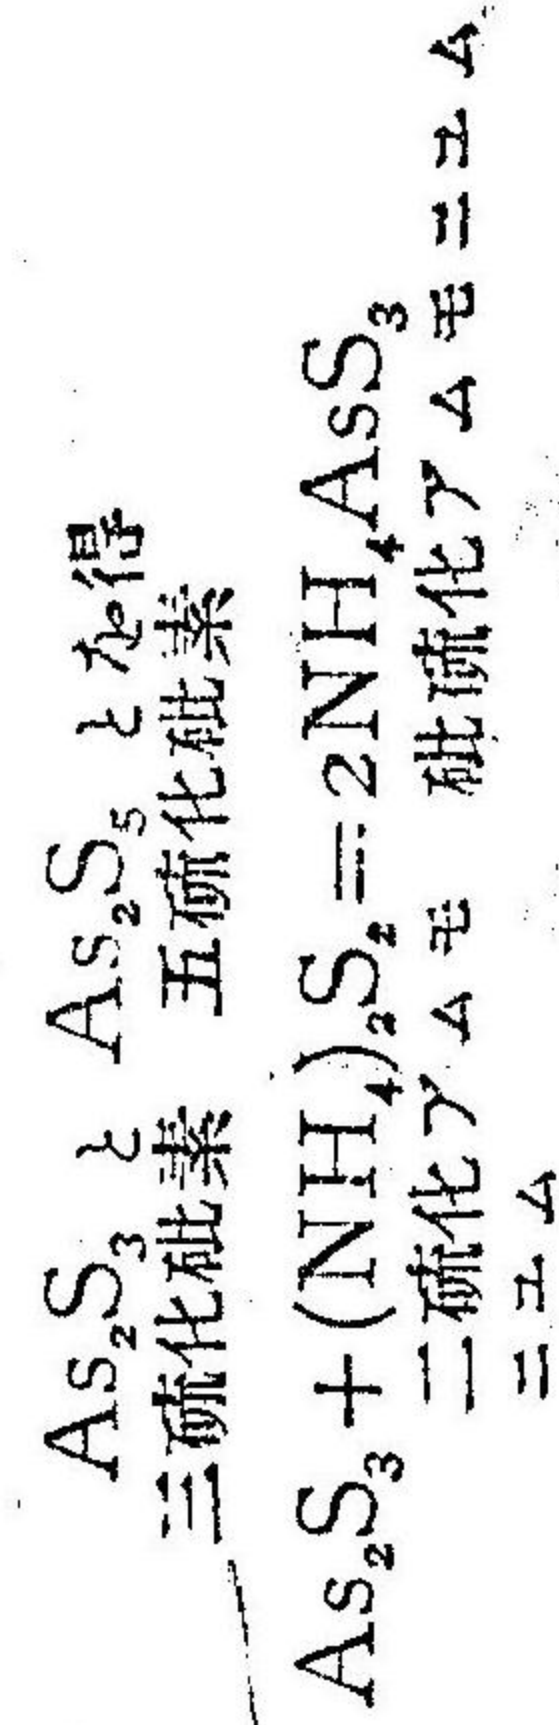 As₂S₃ と As₂S₅ とを得
三硫化砒素 五硫化砒素
As₂S₃＋(NH₄)₂S₂＝2NH₄AsS₃
二硫化アムモ 砒硫化アムモニユム
ニユム